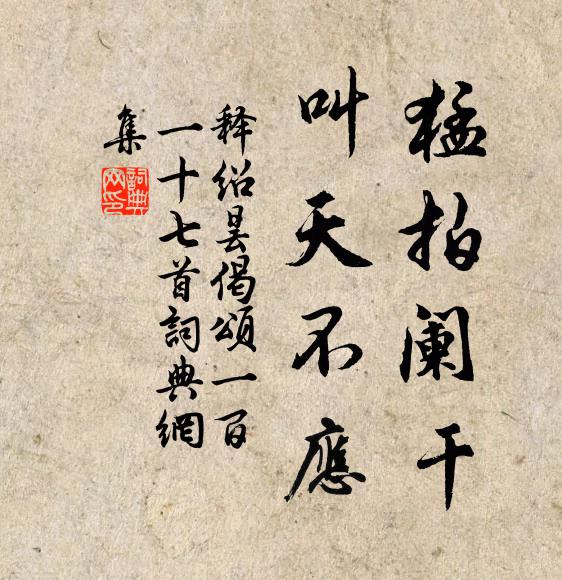 猛拍阑干
叫天不應
释紹昙偈頌一百
一十七首詞典網
集
詞典网印